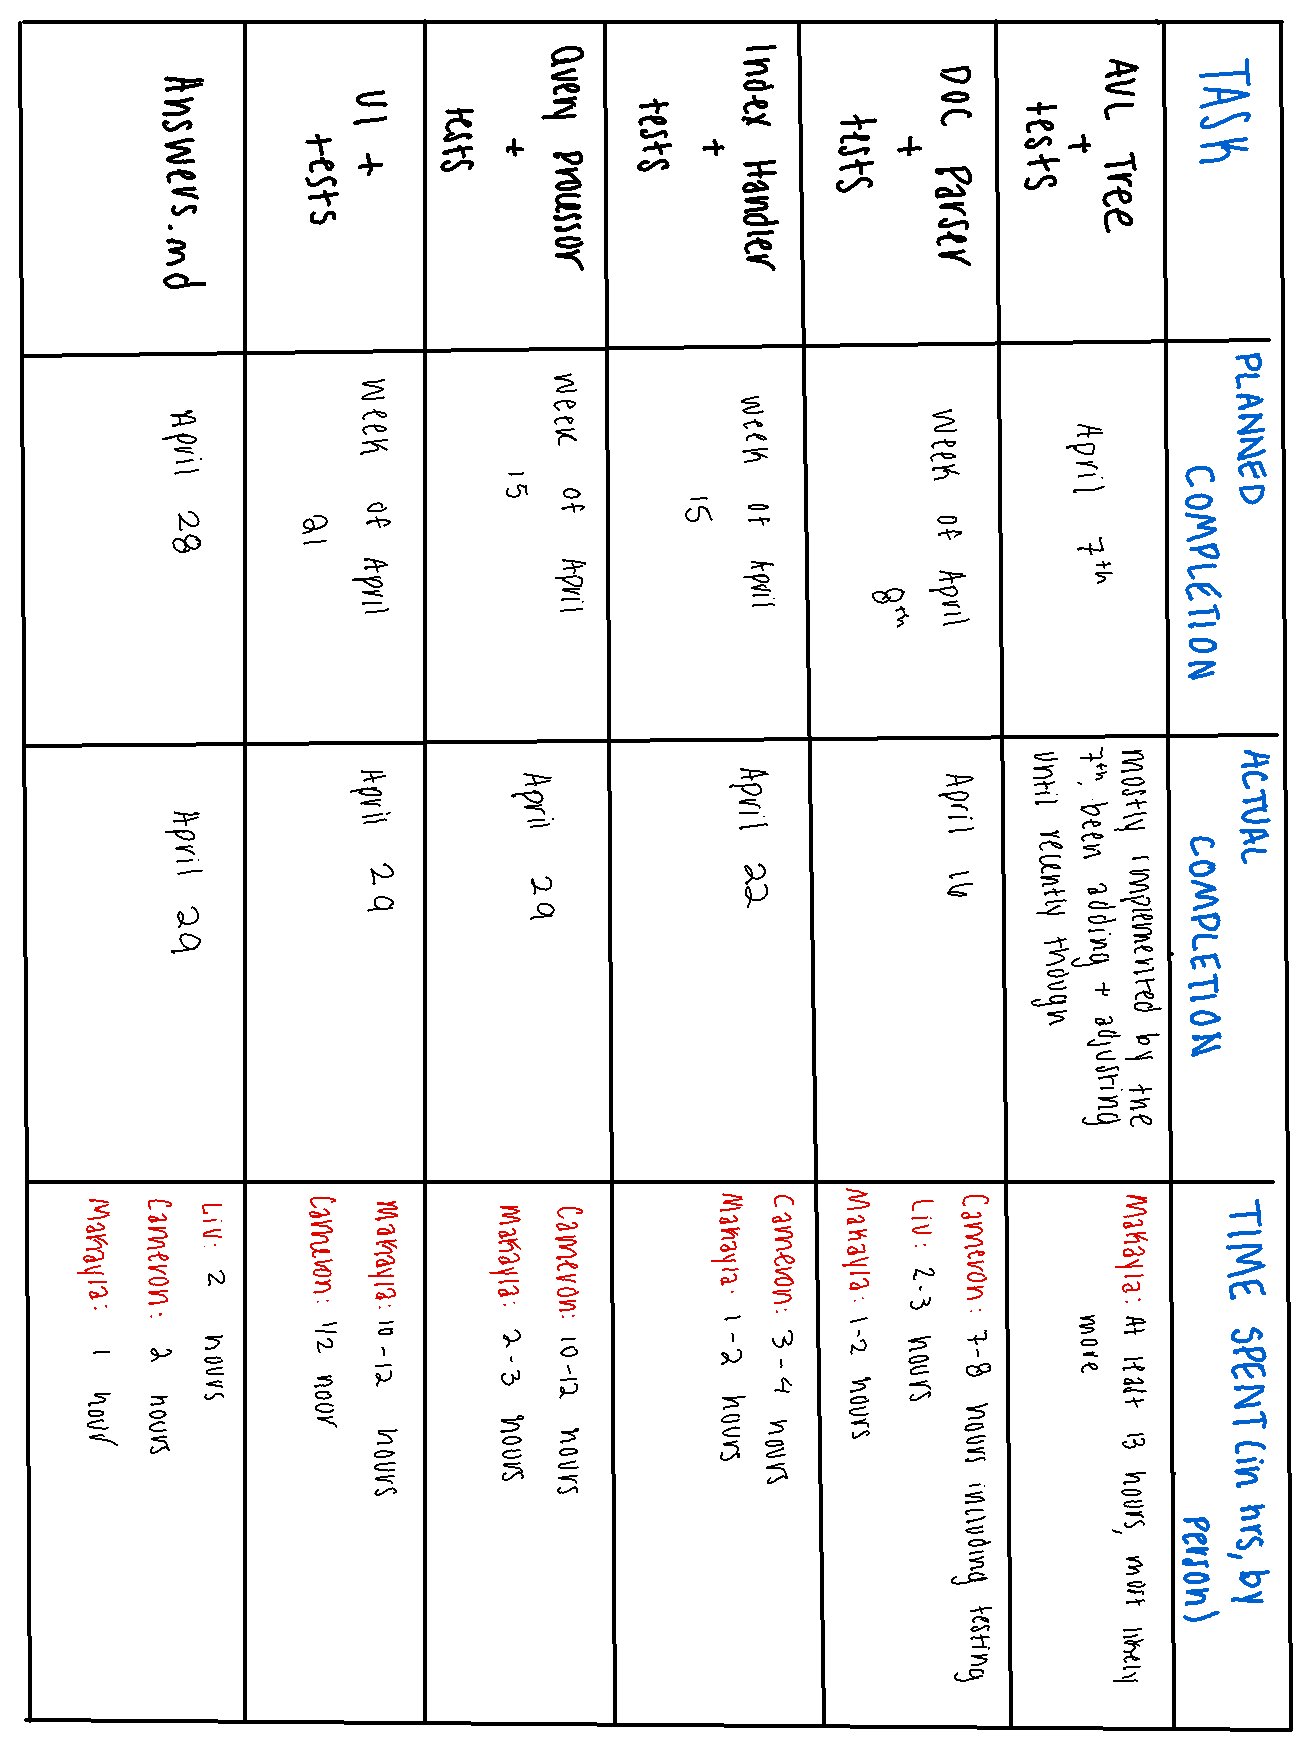 TASK
PLANNED
COMPLETION
ACTUAL
COMPLETION
TIME SPENT (in hrs, by
person)
AVL Tree
+
tests
April 7th
mostly implemented by the
7th, been adding + adjusting
until recently though
Makayla: At least 13 hours, most likely
more
DOC Parser
+
tests
week of April
8th
April 16
Cameron: 7-8 hours including testing
Liv: 2-3 hours
Makayla: 1-2 hours
Index Handler
+
tests
week of April
15
April 22
Cameron: 3-4 hours
Makayla: 1-2 hours
Query Processor
+
tests
week of April
15
April 29
Cameron: 10-12 hours
Makayla: 2-3 hours
UI +
tests
week of April
21
April 29
Makayla: 10-12 hours
Cameron: 1/2 hour
Answers.md
April 28
April 29
Liv: 2 hours
Cameron: 2 hours
Makayla: 1 hour